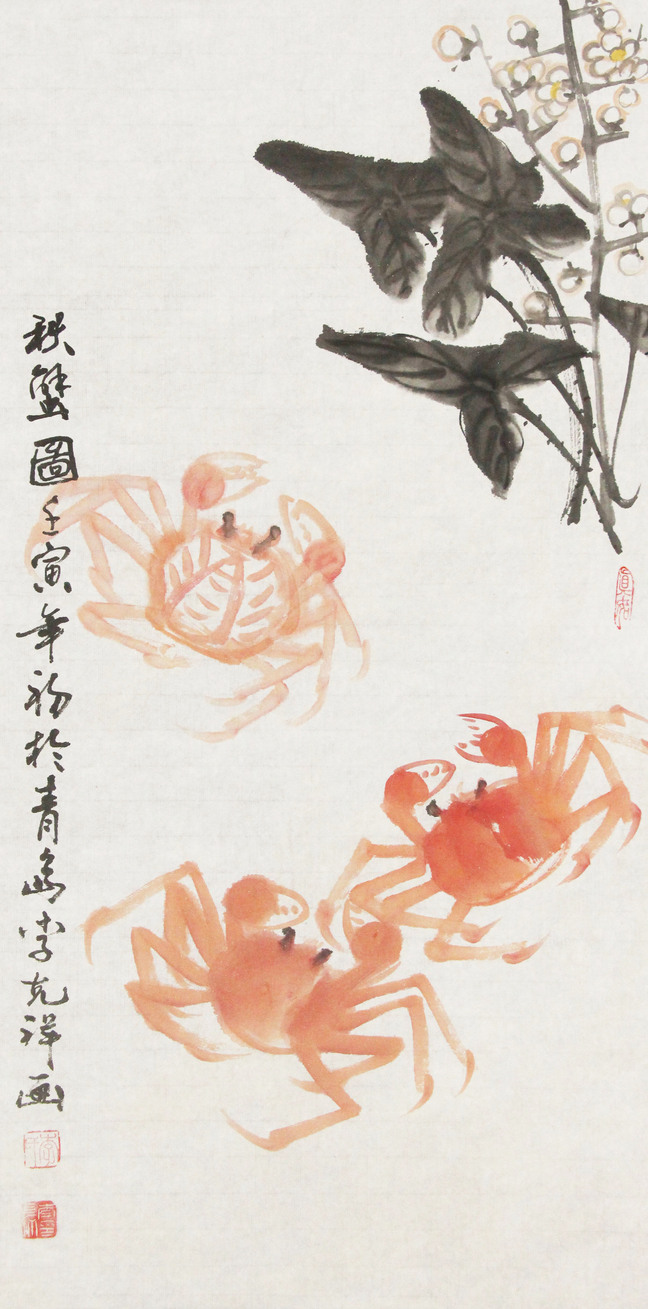 秋蟹圖壬寅年初於青島李克祥画